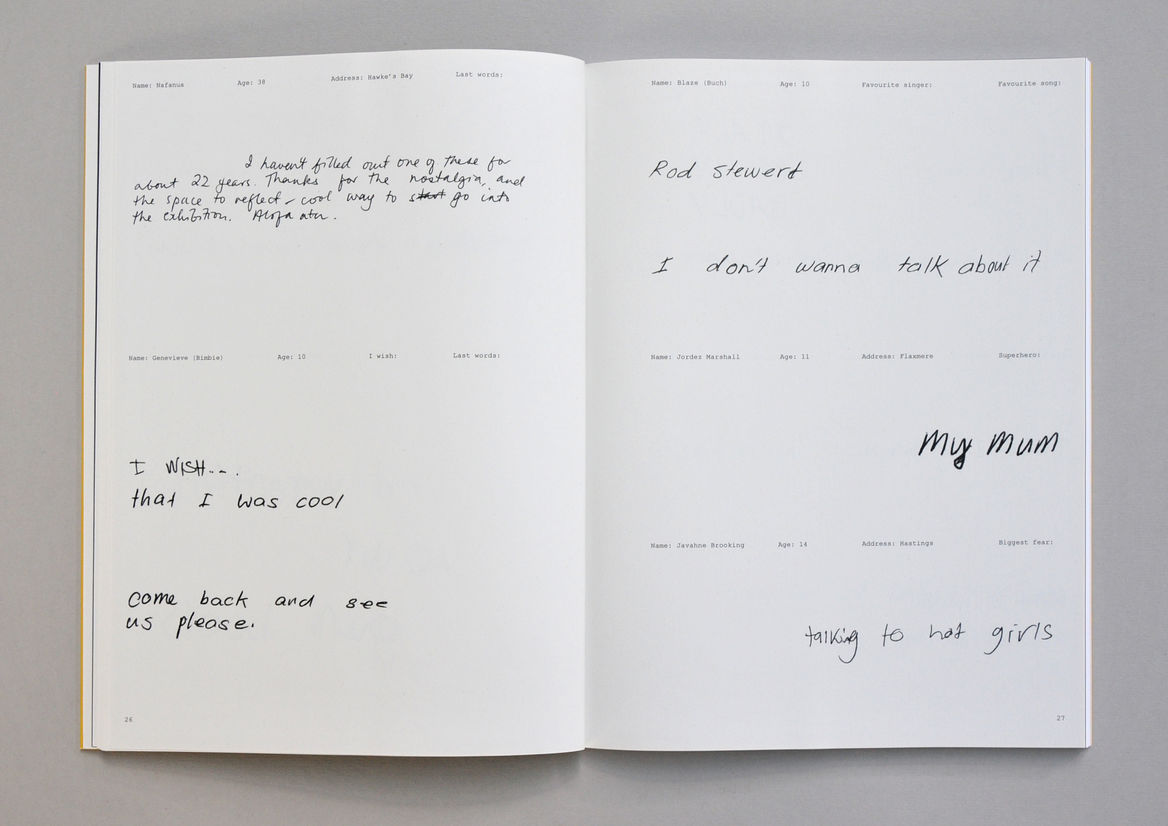 Name: Nafanua Age: 38 Address: Hawke's Bay Last words:
I haven't filled out one of these for
about 22 years. Thanks for the nostalgia, and
the space to reflect - cool way to start go into
the exhibition. Alofa atu.
Name: Genevieve (Bimbie) Age: 10 I wish: Last words:
I WISH....
that I was cool
come back and see
us please.
26
Name: Blaze (Buch) Age: 10 Favourite singer: Favourite song:
Rod stewert
I don't wanna talk about it
Name: Jordez Marshall Age: 11 Address: Flaxmere Superhero:
My Mum
Name: Javahne Brooking Age: 14 Address: Hastings Biggest fear:
talking to hot girls
27